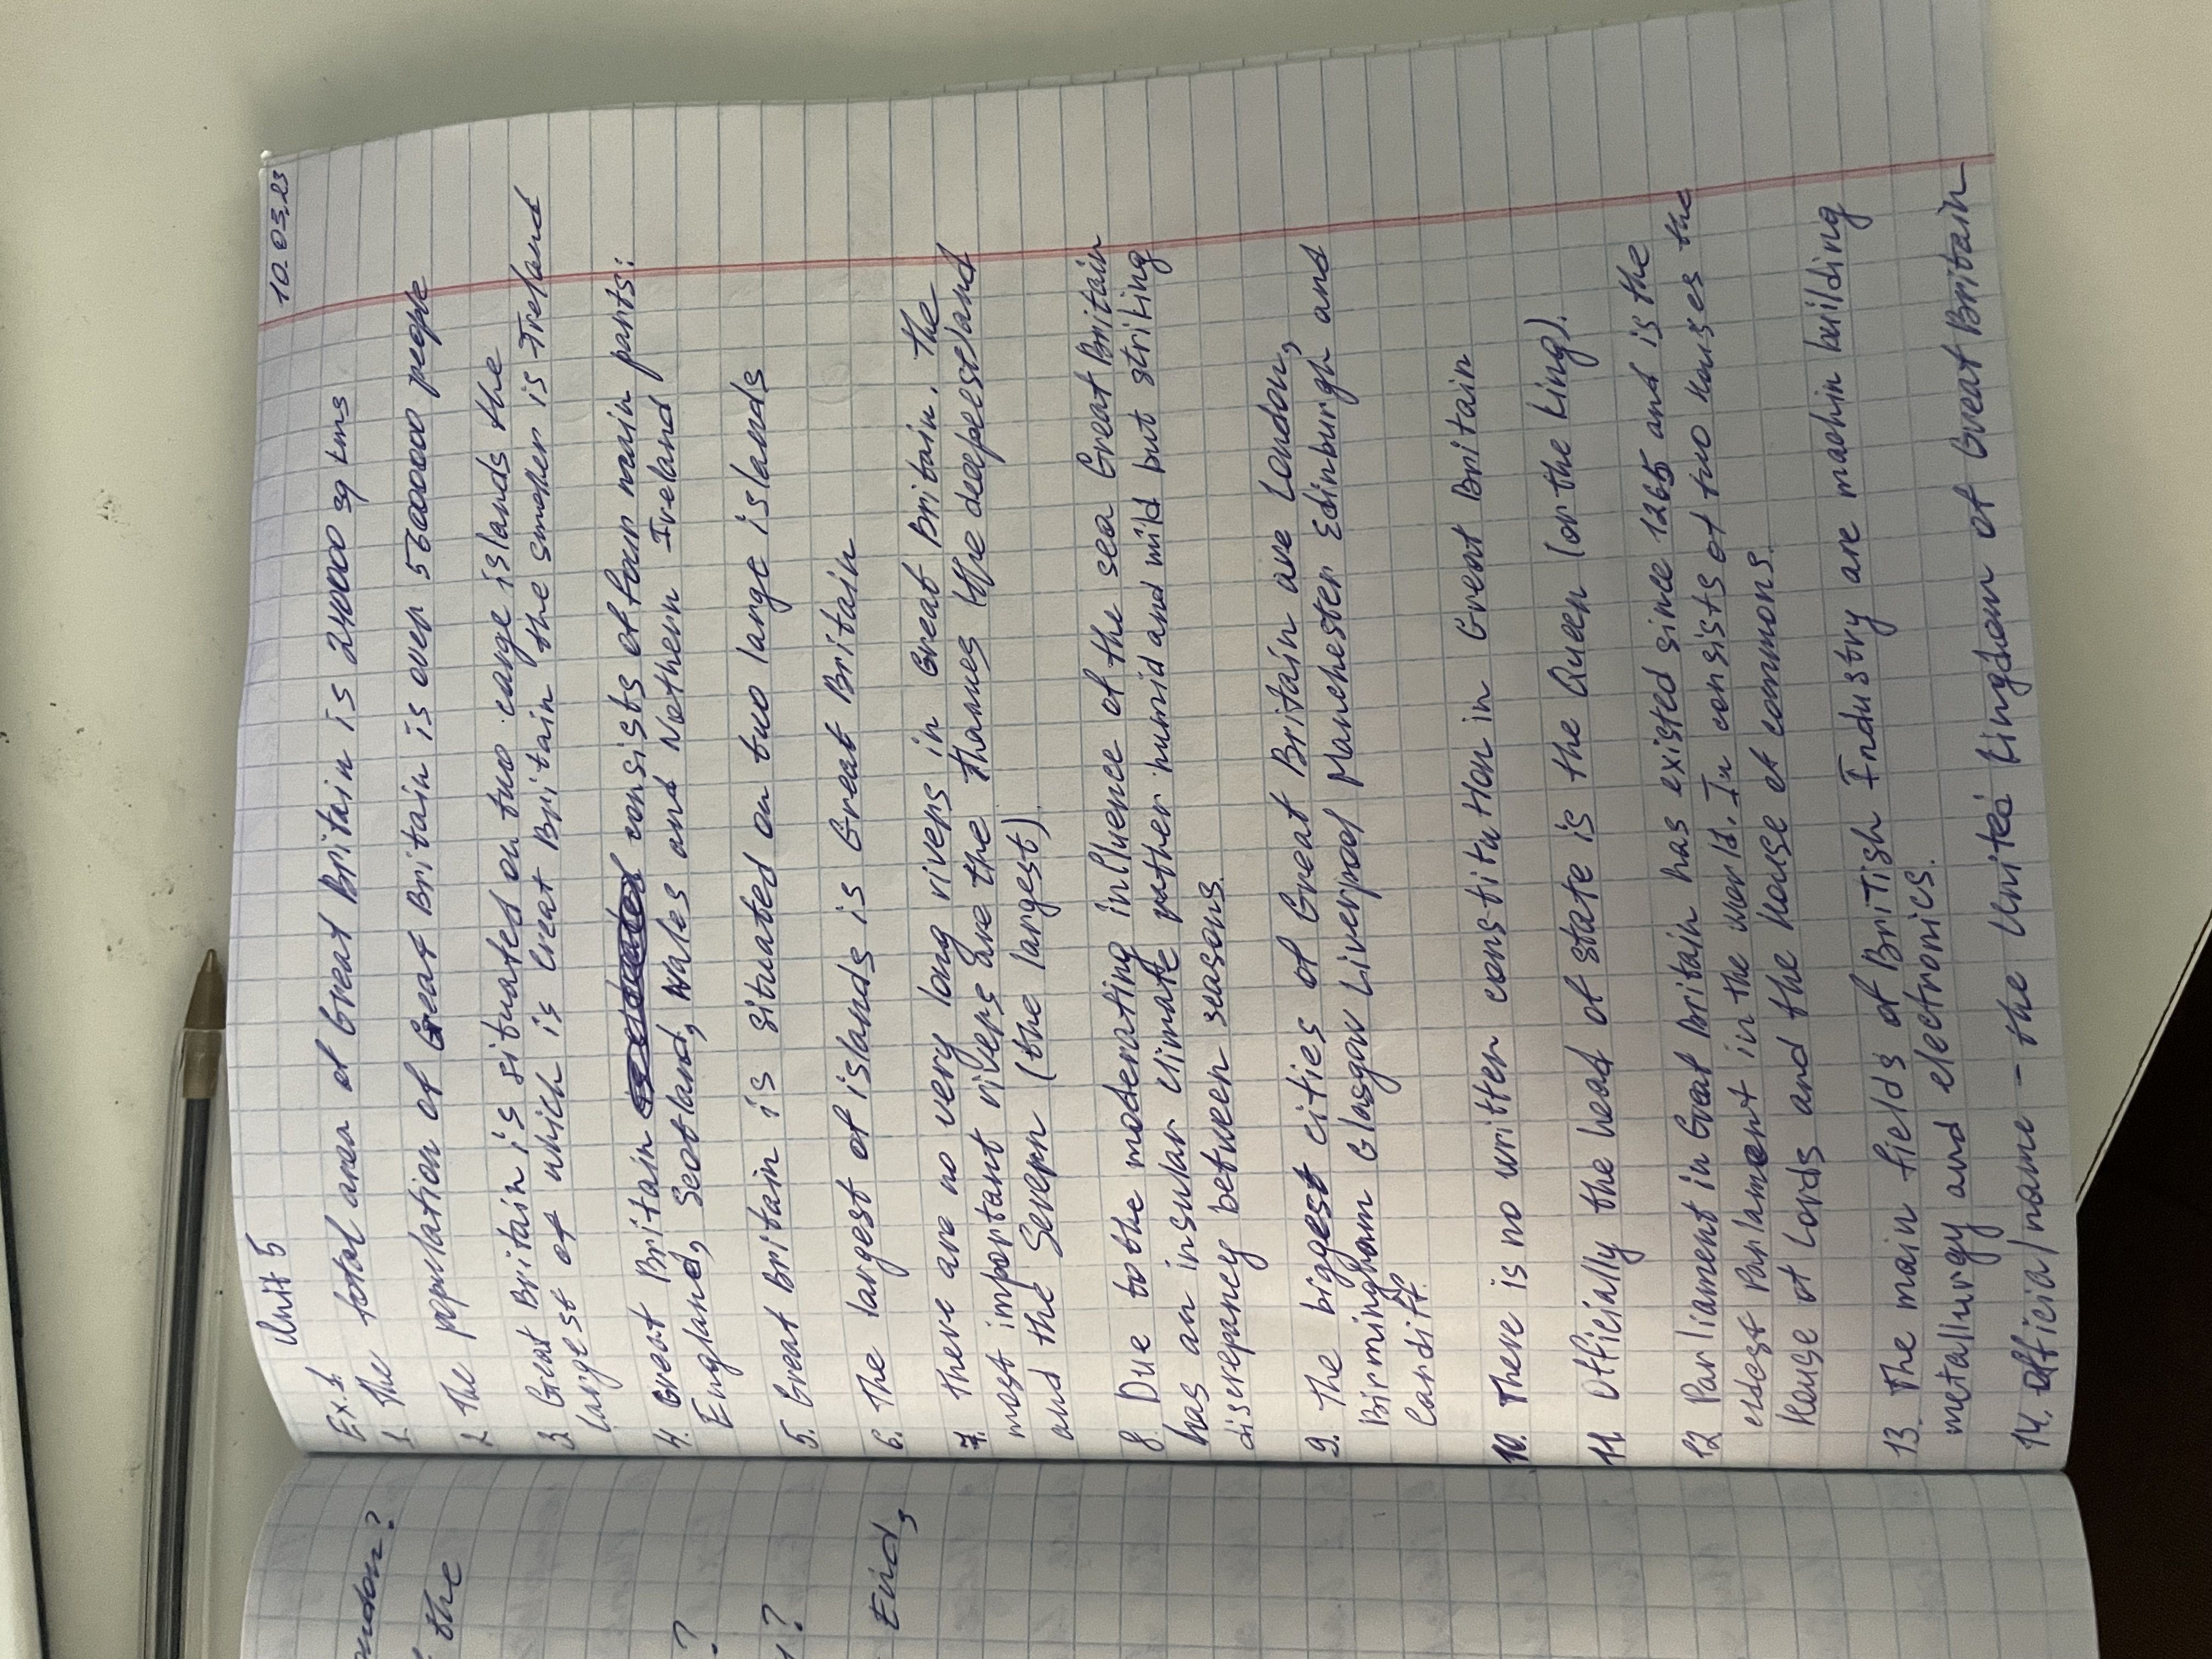 10.03.23
Unit 5
Ex. 1
1. The total area of Great Britain is 244000 sq kms
2 The population of Great Britain is over 56000000 people
3 Great Britain is situated on two large islands the
largest of which is Great Britain the smaller is Ireland
4. Great Britain consists of four main parts:
England, Scotland, Wales and Nothern Ireland
5. Great Britain is situated on two large islands
6. The largest of islands is Great Britain
7. There are no very long rivers in Great Britain. The
most important rivers are the Thames (the deepest) and
and the Severn (the largest).
8 Due to the moderating influence of the sea Great Britain
has an insular climate rather humid and mild but striking
discrepancy between seasons.
9. The biggest cities of Great Britain are London,
Birmingham Glasgow Liverpool Manchester Edinburgh and
Cardiff.
10. There is no written constitution in Great Britain
11. Officially the head of state is the Queen (or the king).
12 Parliament in Great Britain has existed since 1265 and is the
eldest Parlament in the world. In consists of two houses the
House of Lords and the House of commons.
13. The main fields of British Industry are machin building
metallurgy and electronics.
14. Official name - the United Kingdom of Great Britain
the
?
?
End,